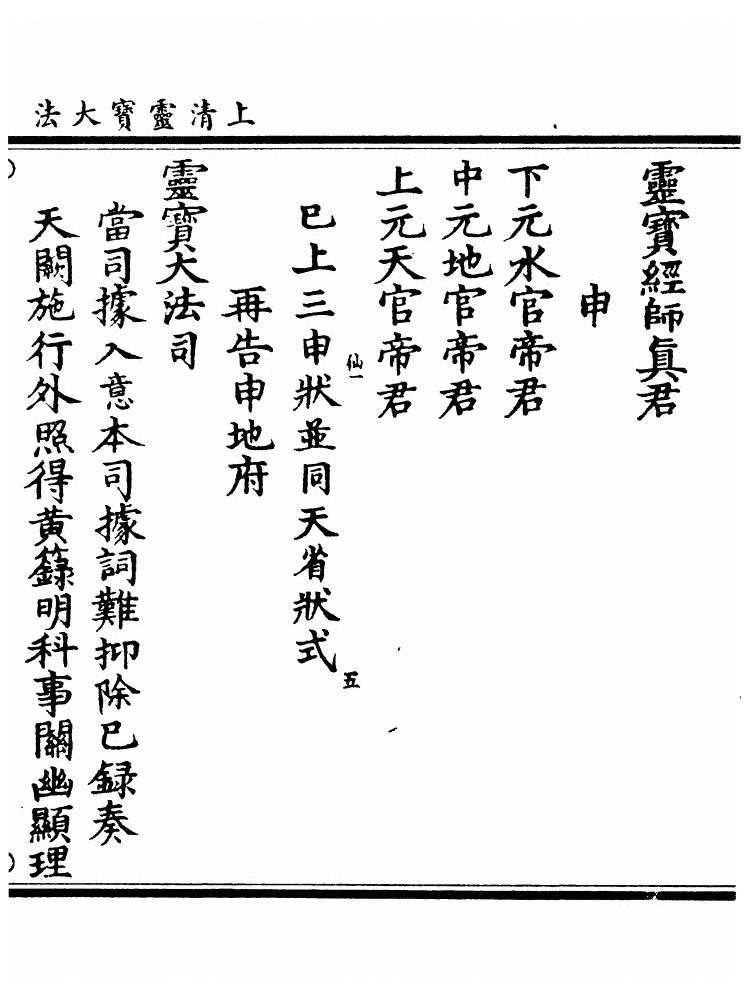 上清靈寶大法
靈寶經師眞君
申
下元水官帝君
中元地官帝君
上元天官帝君
已上三申狀並同天省狀式
仙一
五
再告申地府
靈寶大法司
當司據入意本司據詞難抑除已録奏
天闕施行外照得黄籙明科事關幽顯理